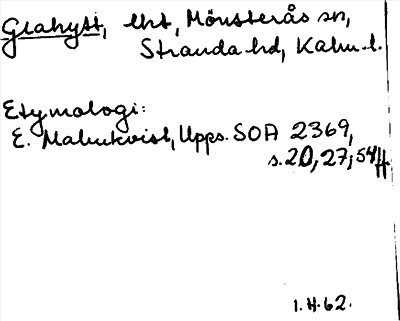 Grahytt, lht, Mönsterås sn,
Stranda hd, Kalm. l.
Etymologi:
E. Malmkvist, Upps. SOA 2369,
s. 20, 27, 54 ff.
1. H. 62.